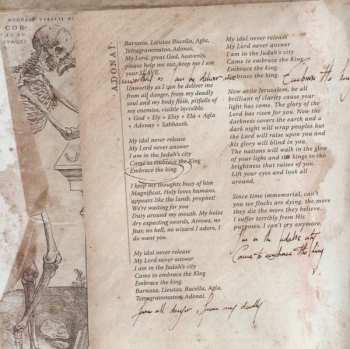 COR-
ADONAI
Barnasa, Lieutas Bucella, Agla,
Tetragrammaton, Adonai,
My Lord, great God, heavenly,
please help me out, keep me I am
your SLAVE.
Unworthy as I am be deliver me
from all danger, from my deadly
soul and my body flesh, pitfalls of
my enemies, visible invisible.
+ God + Ely + Eloy + Ela + Agla
+ Adonay + Sabbaoth.
My idol never release
My Lord never answer
I am in the Judah's city
Came to embrace the King
Embrace the king.
I keep my thoughts busy of him
Magnificat, Holy loves humans,
appears like the lamb, prophet!
We're waiting for you
Duty around my mouth. My holes
dry expecting swords, Arrows, no
fear, no hell, no wizard I adore, I
do want you.
My idol never release
My Lord never answer
I am in the Judah's city
Came to embrace the King
Embrace the king.
Barnasa, Lieutas, Bucella, Agla,
Tetragrammaton, Adonai.
from all danger, from my deadly
My idol never release
My Lord never answer
I am in the Judah's city
Came to embrace the King
Embrace the king.
Embrace the king.
Embrace the
Now arise Jerusalem, be all
brilliant of clarity cause your
light has come. The glory of the
Lord has risen for you. Now the
darkness covers the earth and a
dark night will wrap peoples but
the Lord will raise upon you and
his glory will blind in you.
The nations will walk in the glow
of your light and kings in the
brightness that raises of you.
Lift your eyes and look all
around.
Since time immemorial, can't
you see finals are dying, the more
they die the more they believe...
I suffer terribly from His
purposes, I can't cry anymore.
I'm in the judahs city
Came to embrace the king